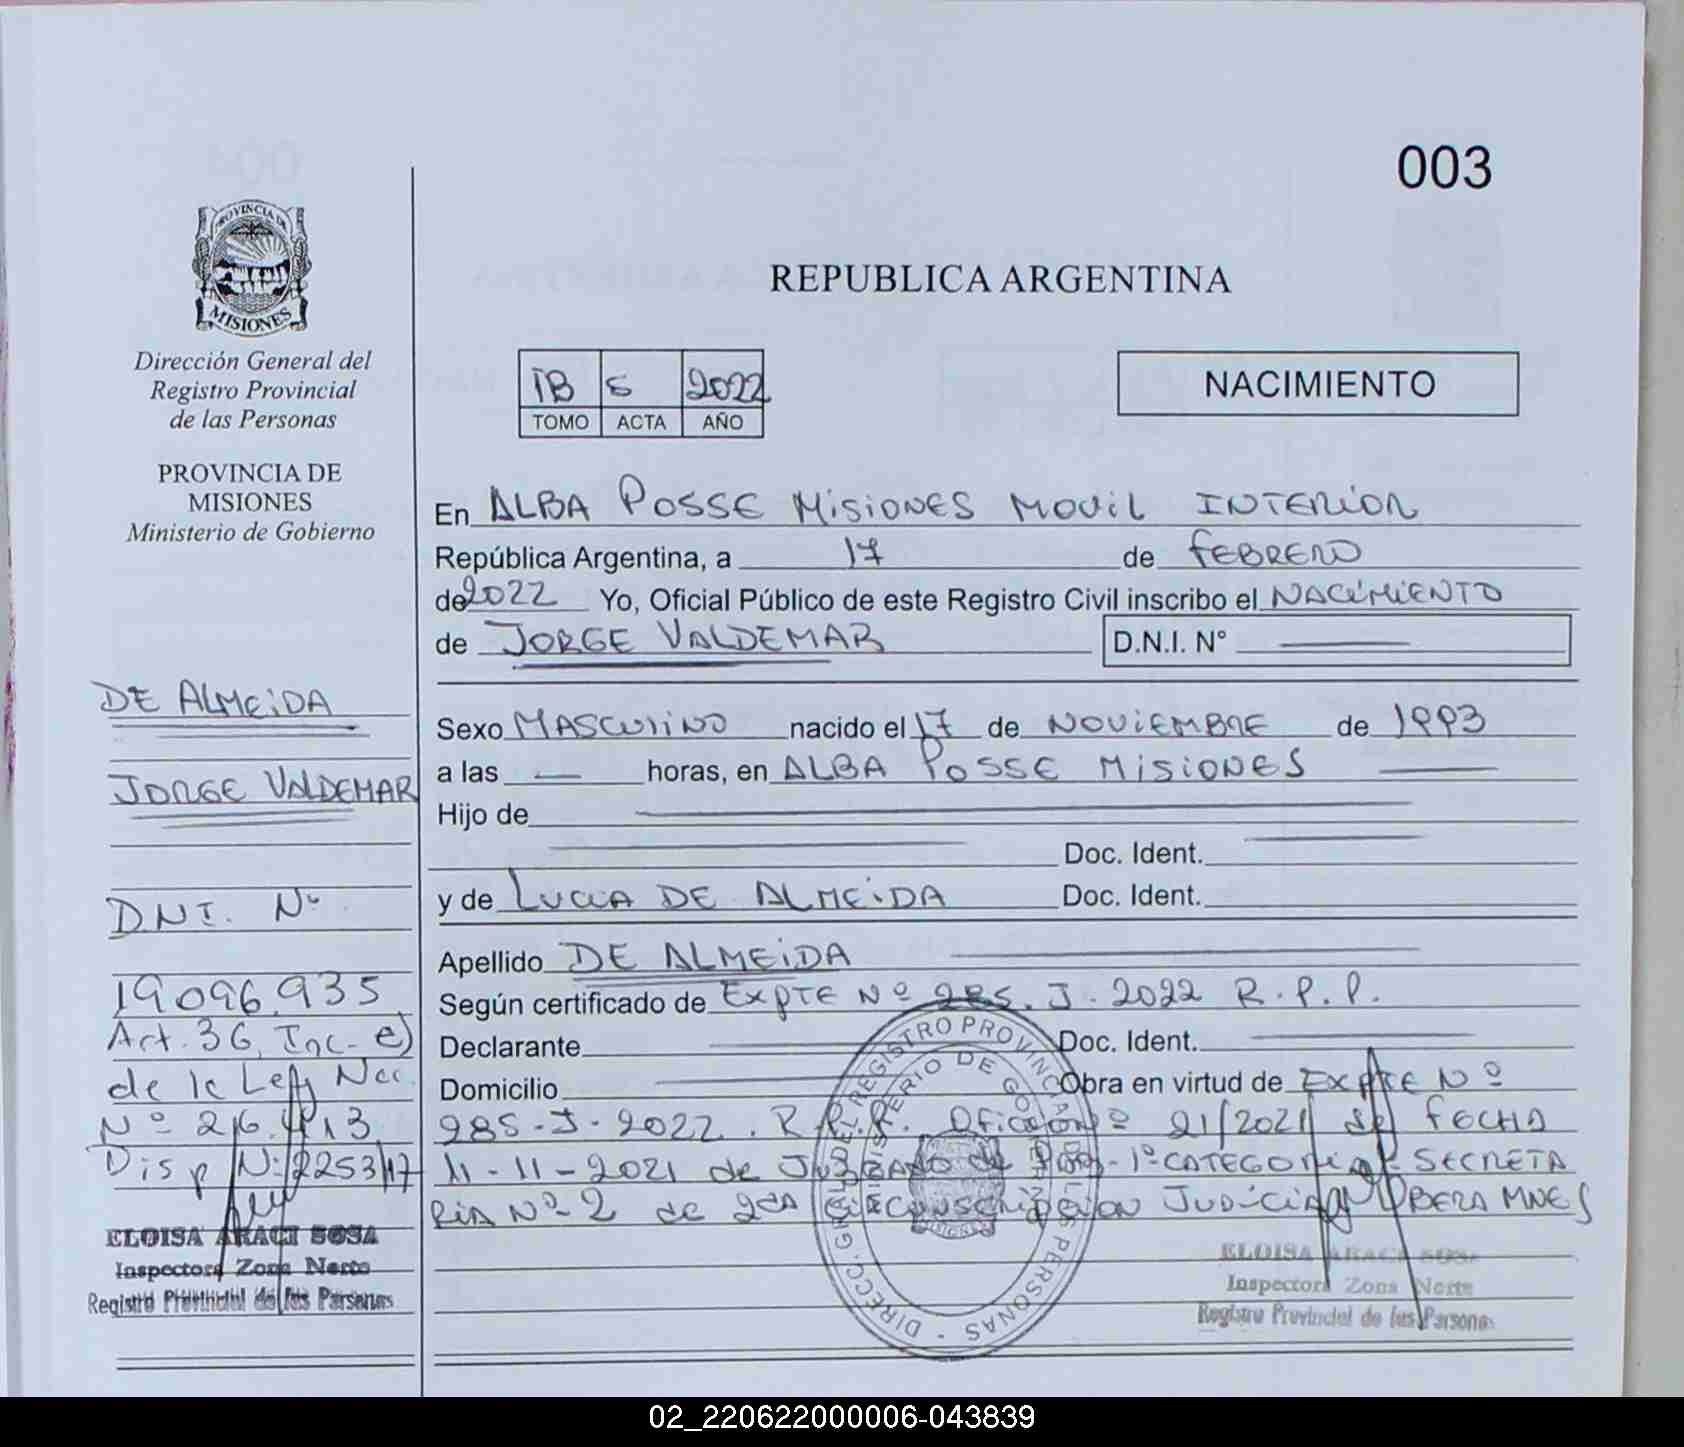 003
PROVINCIA DE
MISIONES
Dirección General del
Registro Provincial
de las Personas
PROVINCIA DE
MISIONES
Ministerio de Gobierno
DE ALMEIDA
JORGE VALDEMAR
DNI. Nº
19096.935
Art. 36, Inc- e)
de la Ley Nac
Nº 26.413
Disp Nº 2253/17
ELOISA ARACI SOSA
Inspectora Zona Norte
Registro Provincial de las Personas
REPUBLICA ARGENTINA
IB 5 2022
TOMO ACTA AÑO
NACIMIENTO
En ALBA POSSE MISIONES MOVIL INTERIOR
República Argentina, a 17 de FEBRERO
de 2022 Yo, Oficial Público de este Registro Civil inscribo el NACIMIENTO
de JORGE VALDEMAR D.N.I. N°
Sexo MASCULINO nacido el 17 de NOVIEMBRE de 1993
a las horas, en ALBA POSSE MISIONES
Hijo de
Doc. Ident.
y de LUCIA DE ALMEIDA Doc. Ident.
Apellido DE ALMEIDA
Según certificado de EXPTE Nº 285. J. 2022 R.P.P.
Declarante Doc. Ident.
Domicilio Obra en virtud de EXPTE Nº
285-J-2022. R.P.P. Oficio Nº 21/2021 de FECHA
11-11-2021 de JUZGADO de 1º CATEGORIA SECRETA
RIA Nº 2 de 2da CIRCUNSCRIPCION JUDICIAL OBERA MNES
DIRECC. GRAL. DEL REGISTRO PROVINCIAL DE LAS PERSONAS
MINISTERIO DE GOBIERNO
ELOISA ARACI SOSA
Inspectora Zona Norte
Registro Provincial de las Personas
02_220622000006-043839